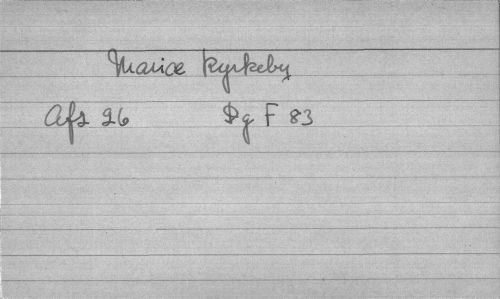 Marice Kyrkeby
Afs 26 Dg F 83